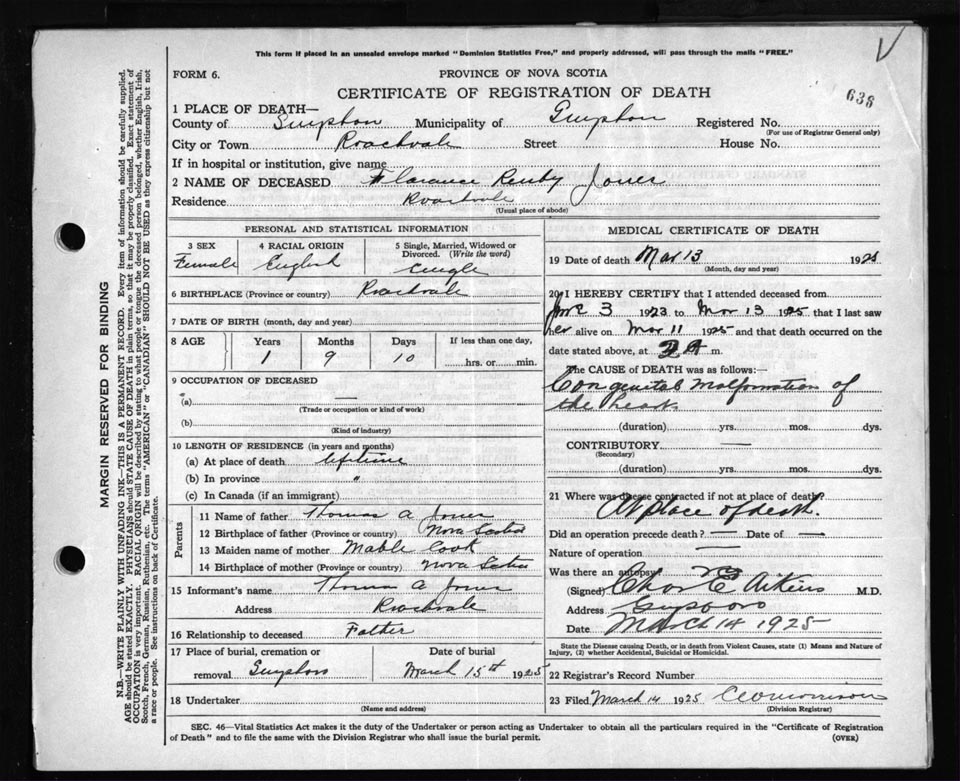 This form if placed in an unsealed envelope marked "Dominion Statistics Free," and properly addressed, will pass through the mails "FREE."
FORM 6.
PROVINCE OF NOVA SCOTIA
CERTIFICATE OF REGISTRATION OF DEATH
638
1 PLACE OF DEATH—
County of Municipality of Registered No.
(For use of Registrar General only)
City or Town Roachvale Street House No.
If in hospital or institution, give name
2 NAME OF DECEASED Jones
Residence Roachvale
(Usual place of abode)
PERSONAL AND STATISTICAL INFORMATION
3 SEX Female
4 RACIAL ORIGIN English
5 Single, Married, Widowed or Divorced. (Write the word)
6 BIRTHPLACE (Province or country) Roachvale
7 DATE OF BIRTH (month, day and year)
8 AGE Years Months Days If less than one day,
1 9 10 hrs. or min.
9 OCCUPATION OF DECEASED
(a) —
(Trade or occupation or kind of work)
(b)
(Kind of industry)
10 LENGTH OF RESIDENCE (in years and months)
(a) At place of death lifetime
(b) In province "
(c) In Canada (if an immigrant)
Parents
11 Name of father Thomas A Jones
12 Birthplace of father (Province or country) Nova Scotia
13 Maiden name of mother Mable Cook
14 Birthplace of mother (Province or country) Nova Scotia
15 Informant's name Thomas A Jones
Address Roachvale
16 Relationship to deceased Father
17 Place of burial, cremation or removal
Date of burial March 15th 1925
18 Undertaker
(Name and address)
MEDICAL CERTIFICATE OF DEATH
19 Date of death Mar 13 1925
(Month, day and year)
20 I HEREBY CERTIFY that I attended deceased from
3 1923 to Mar 13 1925 that I last saw
her alive on Mar 11 1925 and that death occurred on
date stated above, at m.
The CAUSE of DEATH was as follows:—
Congenital Malformation of
the heart
(duration) yrs. mos. dys.
CONTRIBUTORY —
(Secondary)
(duration) yrs. mos. dys.
21 Where was disease contracted if not at place of death?
At place of death.
Did an operation precede death? — Date of —
Nature of operation —
Was there an autopsy
(Signed) Aitkins M.D.
Address Guysboro
Date March 14 1925
State the Disease causing Death, or in death from Violent Causes, state (1) Means and Nature of
Injury, (2) whether Accidental, Suicidal or Homicidal.
22 Registrar's Record Number
23 Filed March 14 1925
(Division Registrar)
SEC. 46—Vital Statistics Act makes it the duty of the Undertaker or person acting as Undertaker to obtain all the particulars required in the "Certificate of Registration
of Death" and to file the same with the Division Registrar who shall issue the burial permit. (OVER)
MARGIN RESERVED FOR BINDING
N.B.—WRITE PLAINLY WITH UNFADING INK—THIS IS A PERMANENT RECORD. Every item of information should be carefully supplied.
AGE should be stated EXACTLY. PHYSICIANS should STATE CAUSE OF DEATH in plain terms, so that it may be properly classified. Exact statement of
OCCUPATION is very important. RACIAL ORIGIN will be described by stating to what people or tongue the deceased person belonged, whether English, Irish,
Scotch, French, German, Russian, Ruthenian, etc. The terms "AMERICAN" or "CANADIAN" SHOULD NOT BE USED as they express citizenship but not
a race or people. See instructions on back of Certificate.